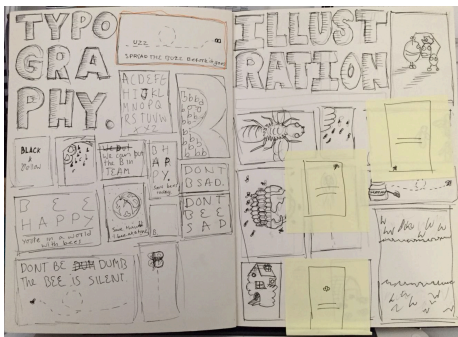 TYPO
GRA
PHY.
BUZZ
SPREAD THE BUZZ BEFORE it goes
ABCDEFG
HIJKL
MNOPQ
RSTUVW
XYZ
BLACK
&
Yellow
we can put
the B in
TEAM
B H
A
P P
Y.
DONT
B SAD.
DONT
BEE
SAD
B E E
HAPPY
you're in a world
with bees
DONT BE DUH DUMB
THE BEE IS SILENT.
B
ILLUST
RATION